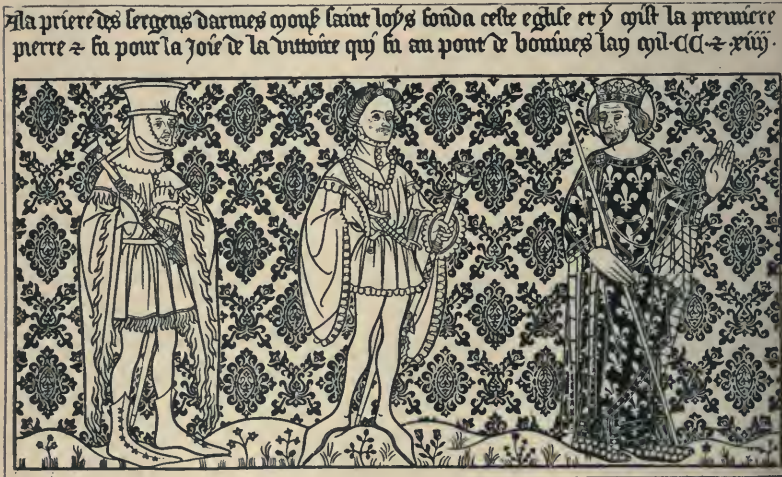 A la priere des sergens darmes mons saint loys fonda ceste eglise et y mist la premiere
pierre & fu pour la joie de la vittoire qui fu au pont de bouines lan mil · CC · & xiiij